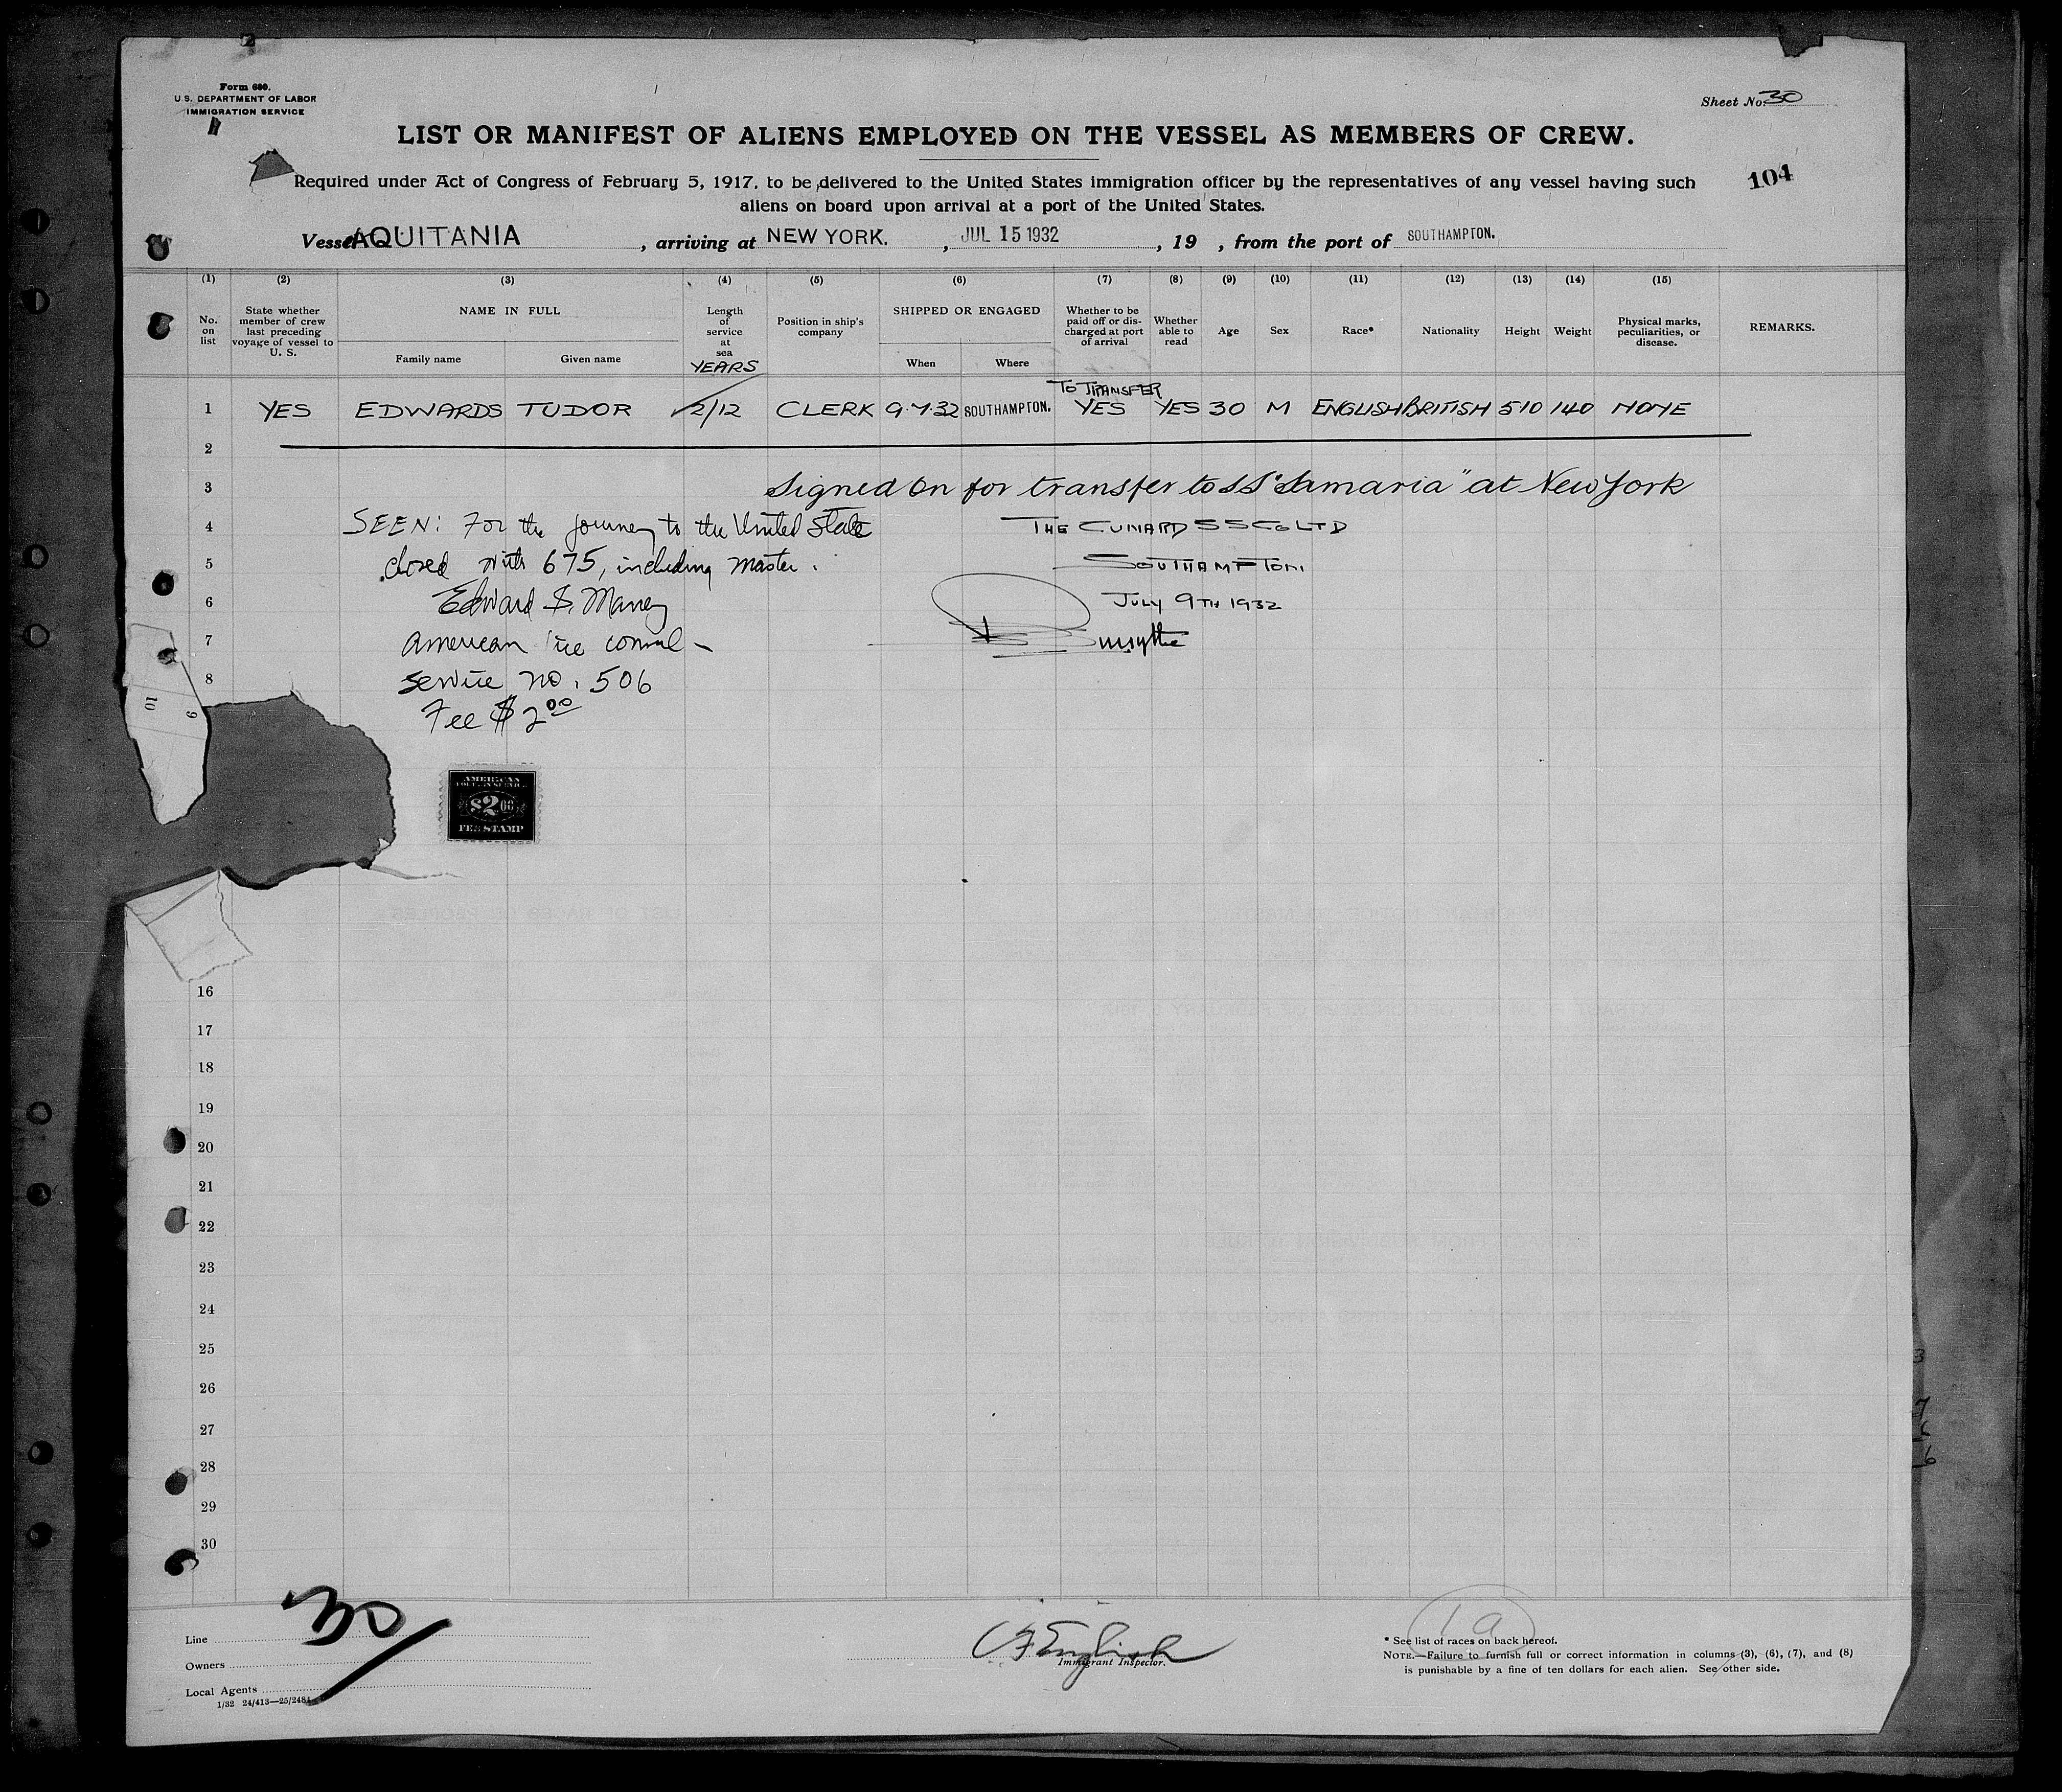 Form 680.
U.S. DEPARTMENT OF LABOR
IMMIGRATION SERVICE
Sheet No. 30
LIST OR MANIFEST OF ALIENS EMPLOYED ON THE VESSEL AS MEMBERS OF CREW.
104
Required under Act of Congress of February 5, 1917, to be delivered to the United States immigration officer by the representatives of any vessel having such
aliens on board upon arrival at a port of the United States.
Vessel AQUITANIA, arriving at NEW YORK., JUL 15 1932, 19 , from the port of SOUTHAMPTON.
(1) (2) (3) (4) (5) (6) (7) (8) (9) (10) (11) (12) (13) (14) (15)
No. on list
State whether member of crew last preceding voyage of vessel to U. S.
NAME IN FULL
Family name
Given name
Length of service at sea
YEARS
Position in ship's company
SHIPPED OR ENGAGED
When
Where
Whether to be paid off or discharged at port of arrival
Whether able to read
Age
Sex
Race*
Nationality
Height
Weight
Physical marks, peculiarities, or disease.
REMARKS.
TO TRANSFER
1 YES EDWARDS TUDOR 2/12 CLERK 9.7.32 SOUTHAMPTON. YES YES 30 M ENGLISH BRITISH 510 140 NONE
2
3 Signed on for transfer to SS "Samaria" at New York
4 SEEN: For the journey to the United State THE CUNARD SS Co LTD
5 closed with 675, including master. SOUTHAMPTON
6 Edward S. Maney JULY 9TH 1932
7 American Vice Consul -
8 Service no. 506
Fee $2.00
10
9
AMERICAN
$2.00
FEE STAMP
16
17
18
19
20
21
22
23
24
25
26
27
28
29
30
30/
1 a
Line
Owners
Local Agents
1/32 24/413—25/2484
English
Immigrant Inspector.
* See list of races on back hereof.
NOTE.—Failure to furnish full or correct information in columns (3), (6), (7), and (8)
is punishable by a fine of ten dollars for each alien. See other side.